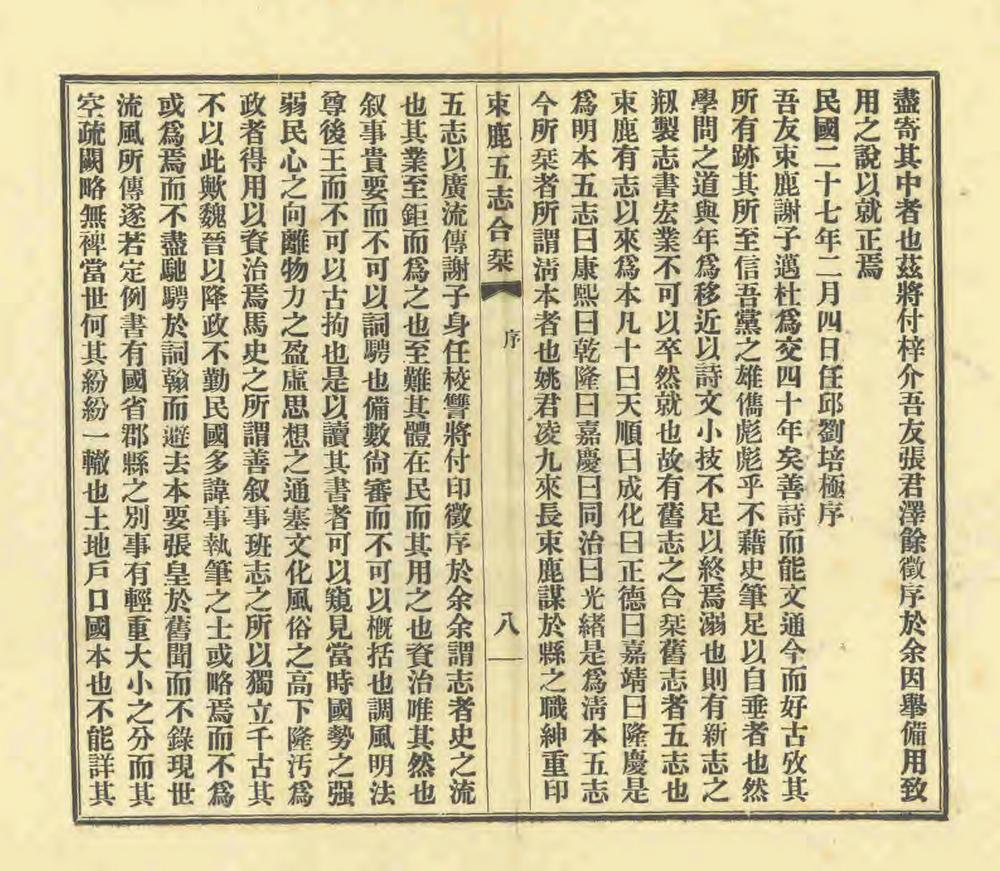 盡寄其中者也茲將付梓介吾友張君澤餘徵序於余因舉備用致
用之說以就正焉
民國二十七年二月四日任邱劉培極序
吾友束鹿謝子邁杜爲交四十年矣善詩而能文通今而好古攷其
所有跡其所至信吾黨之雄儁彪彪乎不藉史筆足以自垂者也然
學問之道與年爲移近以詩文小技不足以終焉溺也則有新志之
剏製志書宏業不可以卒然就也故有舊志之合栞舊志者五志也
束鹿有志以來爲本凡十曰天順曰成化曰正德曰嘉靖曰隆慶是
爲明本五志曰康熙曰乾隆曰嘉慶曰同治曰光緒是爲淸本五志
今所栞者所謂淸本者也姚君凌九來長束鹿謀於縣之職紳重印
束鹿五志合栞 序 八
五志以廣流傳謝子身任校讐將付印徵序於余余謂志者史之流
也其業至鉅而爲之也至難其體在民而其用之也資治唯其然也
叙事貴要而不可以詞騁也備數尙審而不可以槪括也調風明法
尊後王而不可以古拘也是以讀其書者可以窺見當時國勢之强
弱民心之向離物力之盈虛思想之通塞文化風俗之高下隆汚爲
政者得用以資治焉馬史之所謂善叙事班志之所以獨立千古其
不以此歟魏晉以降政不勤民國多諱事執筆之士或略焉而不爲
或爲焉而不盡馳騁於詞翰而避去本要張皇於舊聞而不錄現世
流風所傳遂若定例書有國省郡縣之別事有輕重大小之分而其
空疏闕略無裨當世何其紛紛一轍也土地戶口國本也不能詳其